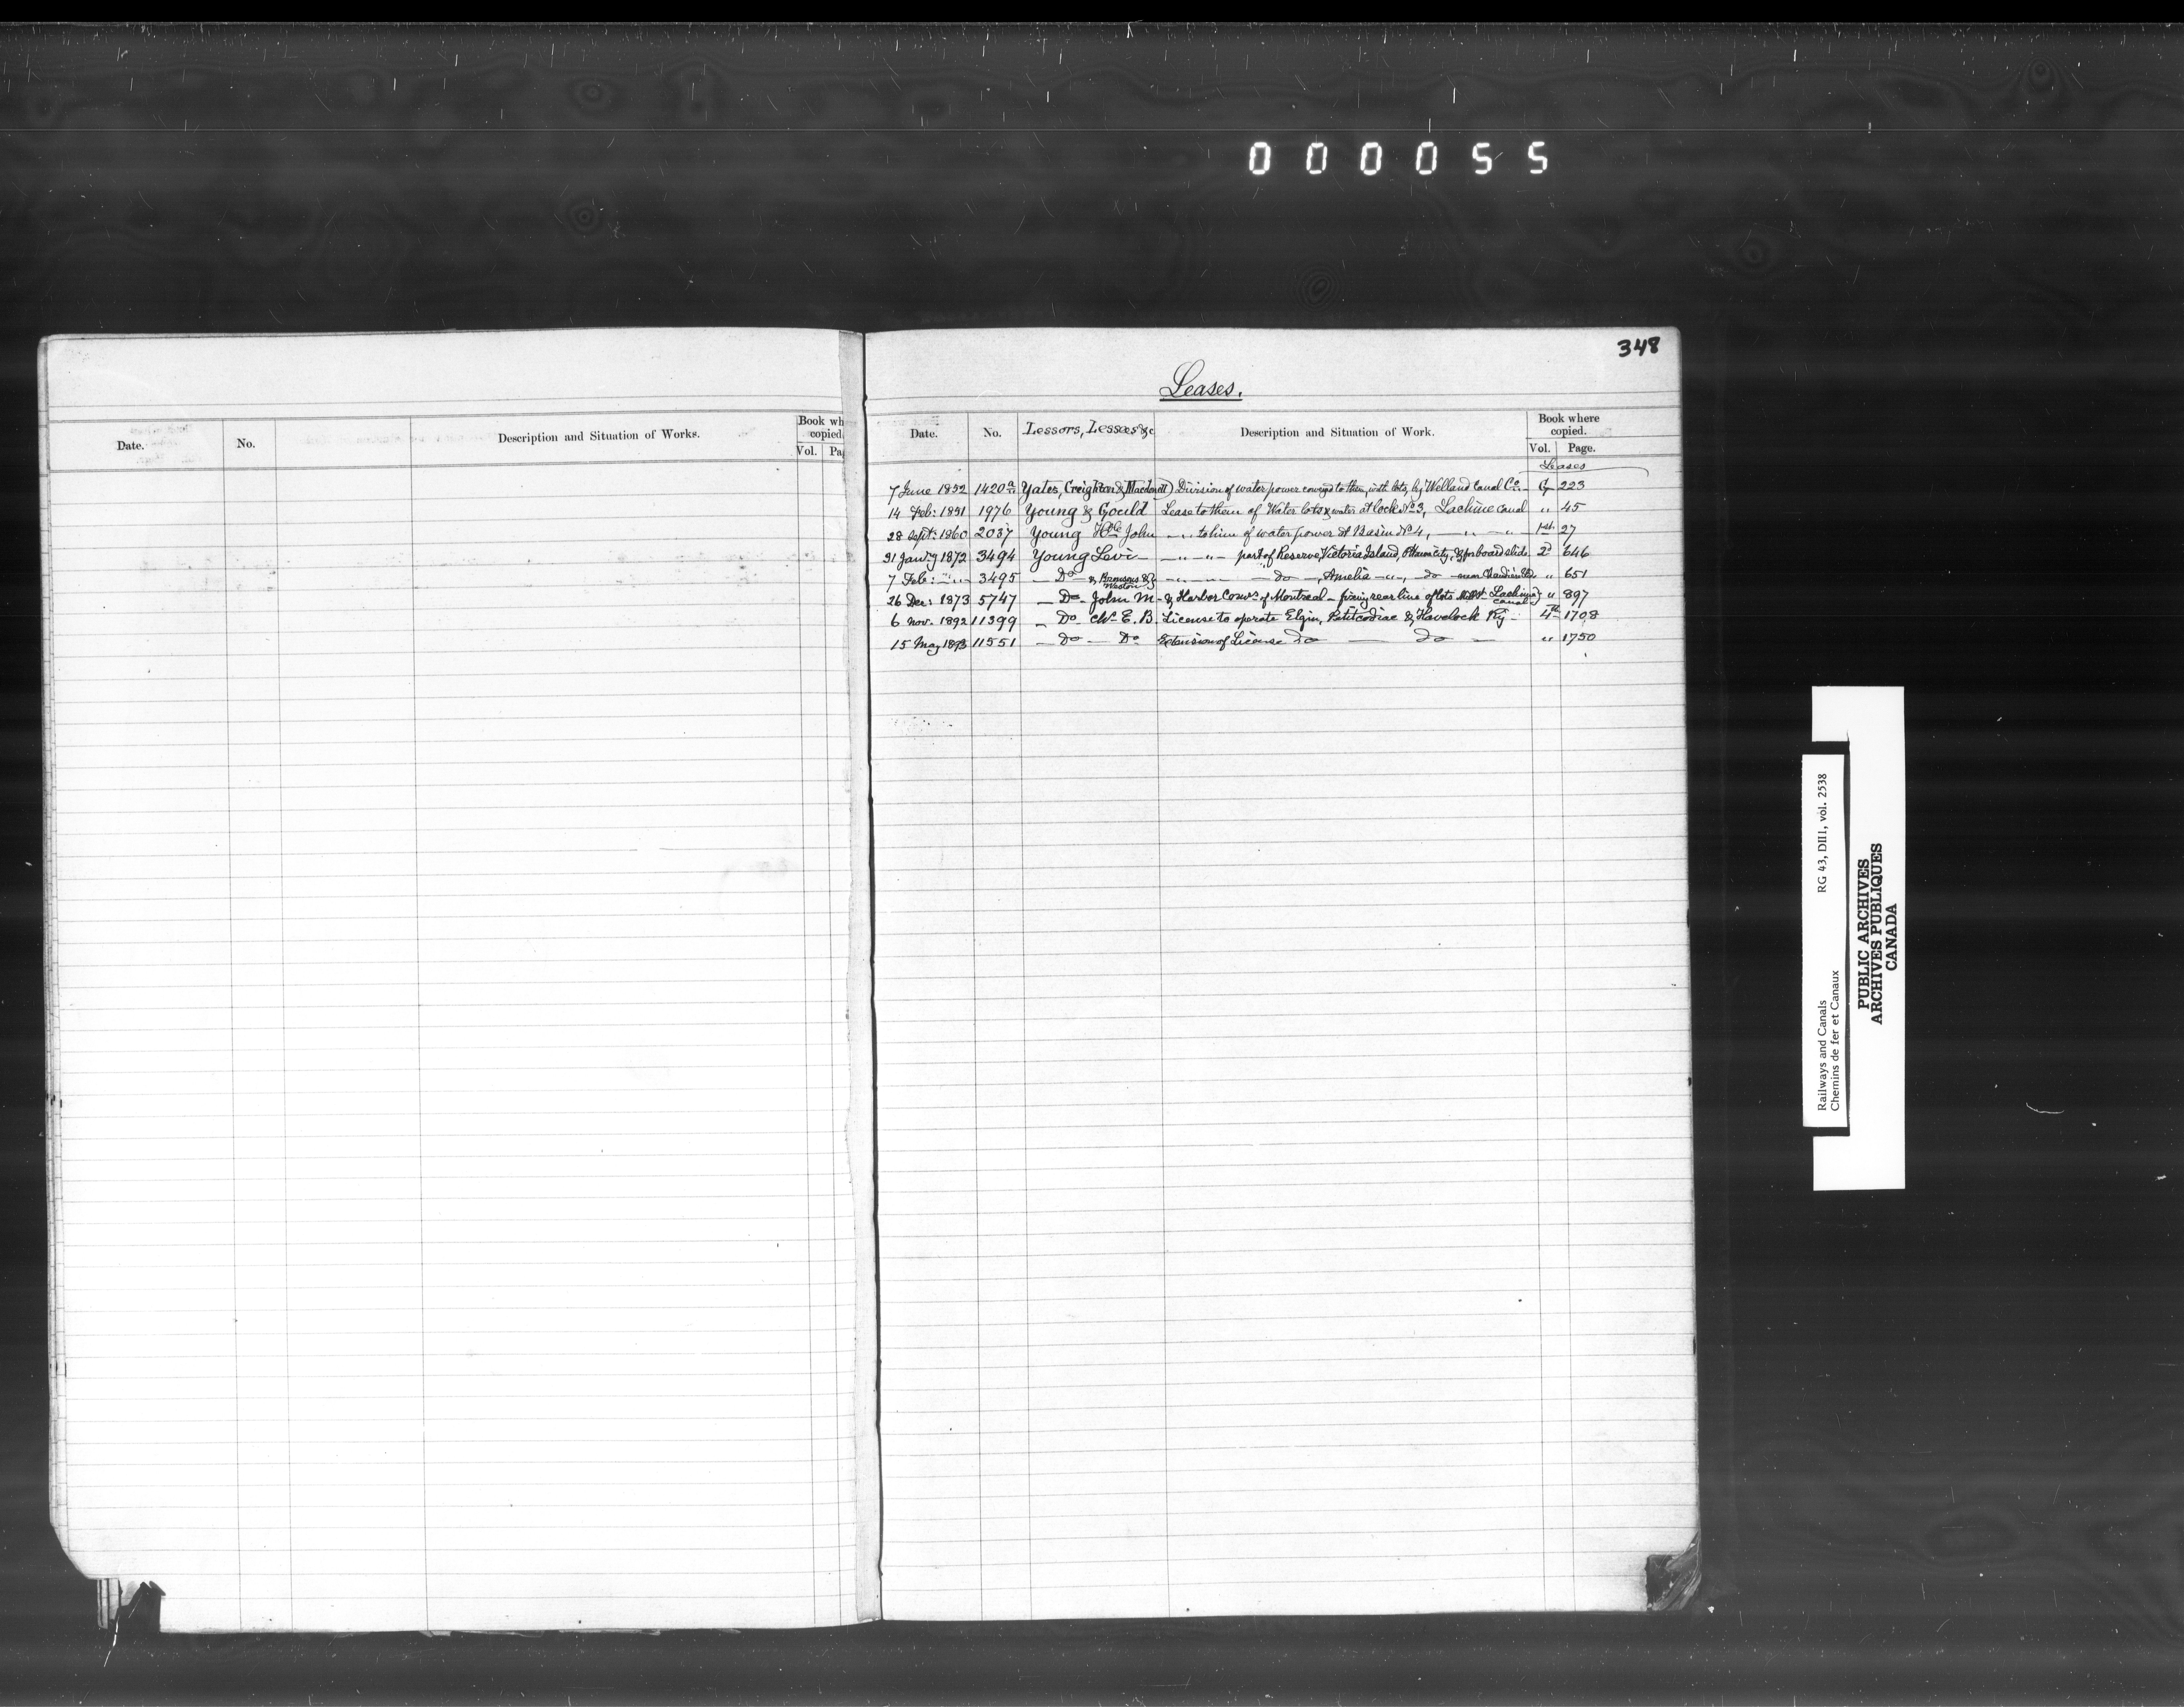 000055
348
Leases.
Date. No. Description and Situation of Works. Book wh copied Vol. Pa
Date. No. Lessors, Lessees &c Description and Situation of Work. Book where copied. Vol. Page.
Leases
7 June 1852 1420a Yates, Creighton & Macdonell) Division of water power conveyed to them, with lots, by Welland Canal Co. G 223
14 Feb: 1851 1976 Young & Gould Lease to them of Water lots & water at lock No 3, Lachine Canal " 45
28 Sept: 1860 2037 Young Hble John — " to him of water power at Basin No 4, — " — " — 1st 27
31 Jan'y 1872 3494 Young Levi — — " — " — part of Reserve, Victoria Island, Ottawa City, & for board slide 2d 646
7 Feb: — " — 3495 — Do — & Bronsons & Weston — " — — do —, Amelia — " —, do — near Chaudière " 651
26 Dec: 1873 5747 — Do — John M — & Harbor Comrs of Montreal — fixing rear line of lots Lachine Canal " 897
6 Nov. 1892 11399 — Do — Chs E. B. License to operate Elgin, Petitcodiac & Havelock Ry — 4th 1708
15 May 1893 11551 — Do — Do Extension of License do — do — " 1750
Railways and Canals RG 43, DIII, vol. 2538
Chemins de fer et Canaux
PUBLIC ARCHIVES
ARCHIVES PUBLIQUES
CANADA